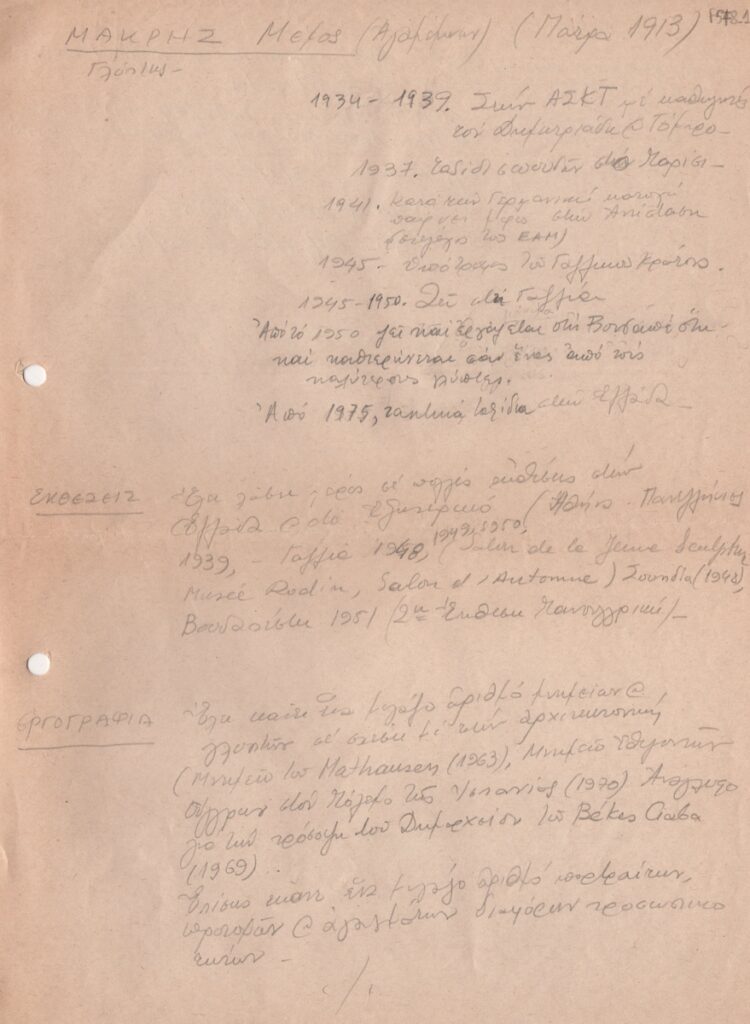 ΜΑΚΡΗΣ Μέμος (Αγαμέμνων) (Πάτρα 1913)
Γλύπτης -
1934 - 1939. Στήν ΑΣΚΤ μέ καθηγητές
τον Δημητριάδη @ Τόμπρο -
1937. Ταξίδι σπουδών στό Παρίσι -
1941. Κατά την Γερμανική κατοχή
παίρνει μέρος στην Αντίσταση
(στέλεχος του ΕΑΜ)
1945 - Υπότροφος του Γαλλικού Κράτους.
1945-1950. Ζεί στή Γαλλία
Από τό 1950 ζεί και εργάζεται στή Βουδαπέστη -
και καθιερώνεται σάν ένας από τούς
καλύτερους γλύπτες.
Από 1975, τακτικά ταξίδια στην Ελλάδα -
ΕΚΘΕΣΕΙΣ
Έχει λάβει μέρος σέ πολλές εκθέσεις στήν
Ελλάδα @ στό Εξωτερικό (Αθήνα Πανελλήνιος
1939, - Γαλλία 1948, 1949, 1950, (Salon de la Jeune Sculpture
Musée Rodin, Salon d'Automne) Σουηδία (1948),
Βουδαπέστη 1951 (2η Έκθεση Πανουγγρική) -
ΕΡΓΟΓΡΑΦΙΑ
Έχει κάνει ένα μεγάλο αριθμό μνημείων @
γλυπτών σέ σχέση μέ την αρχιτεκτονική
(Μνημείο του Mathausen (1963), Μνημείο Εθελοντών
Ούγγρων στόν Πόλεμο της Ισπανίας (1970) Ανάγλυφο
για την πρόσοψη του Δημαρχείου του Békes Ciaba
(1969)..
Επίσης κάνει ένα μεγάλο αριθμό πορτραίτων,
προτομών @ αγαλμάτων διαφόρων προσωπικο
τήτων -